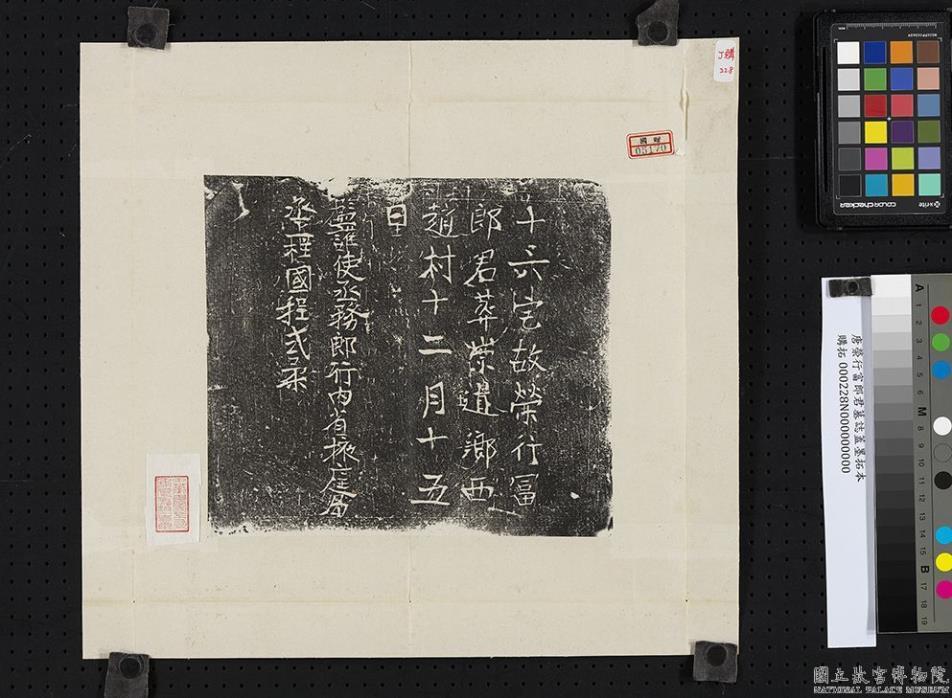 十六宅故榮行冨
郎君葬崇道鄉西
趙村十二月十五
日
監護使丞務郎行內省掖庭局
丞程國程式汞
J購
328
國購
03170
唐榮行富郎君墓誌蓋墨拓本
購拓 000228N000000000
colorchecker
x-rite
A 1 2 3 4 5 6 M 8 9 10 11 12 13 14 15 B 17 18 19
國立故宮博物院
NATIONAL PALACE MUSEUM